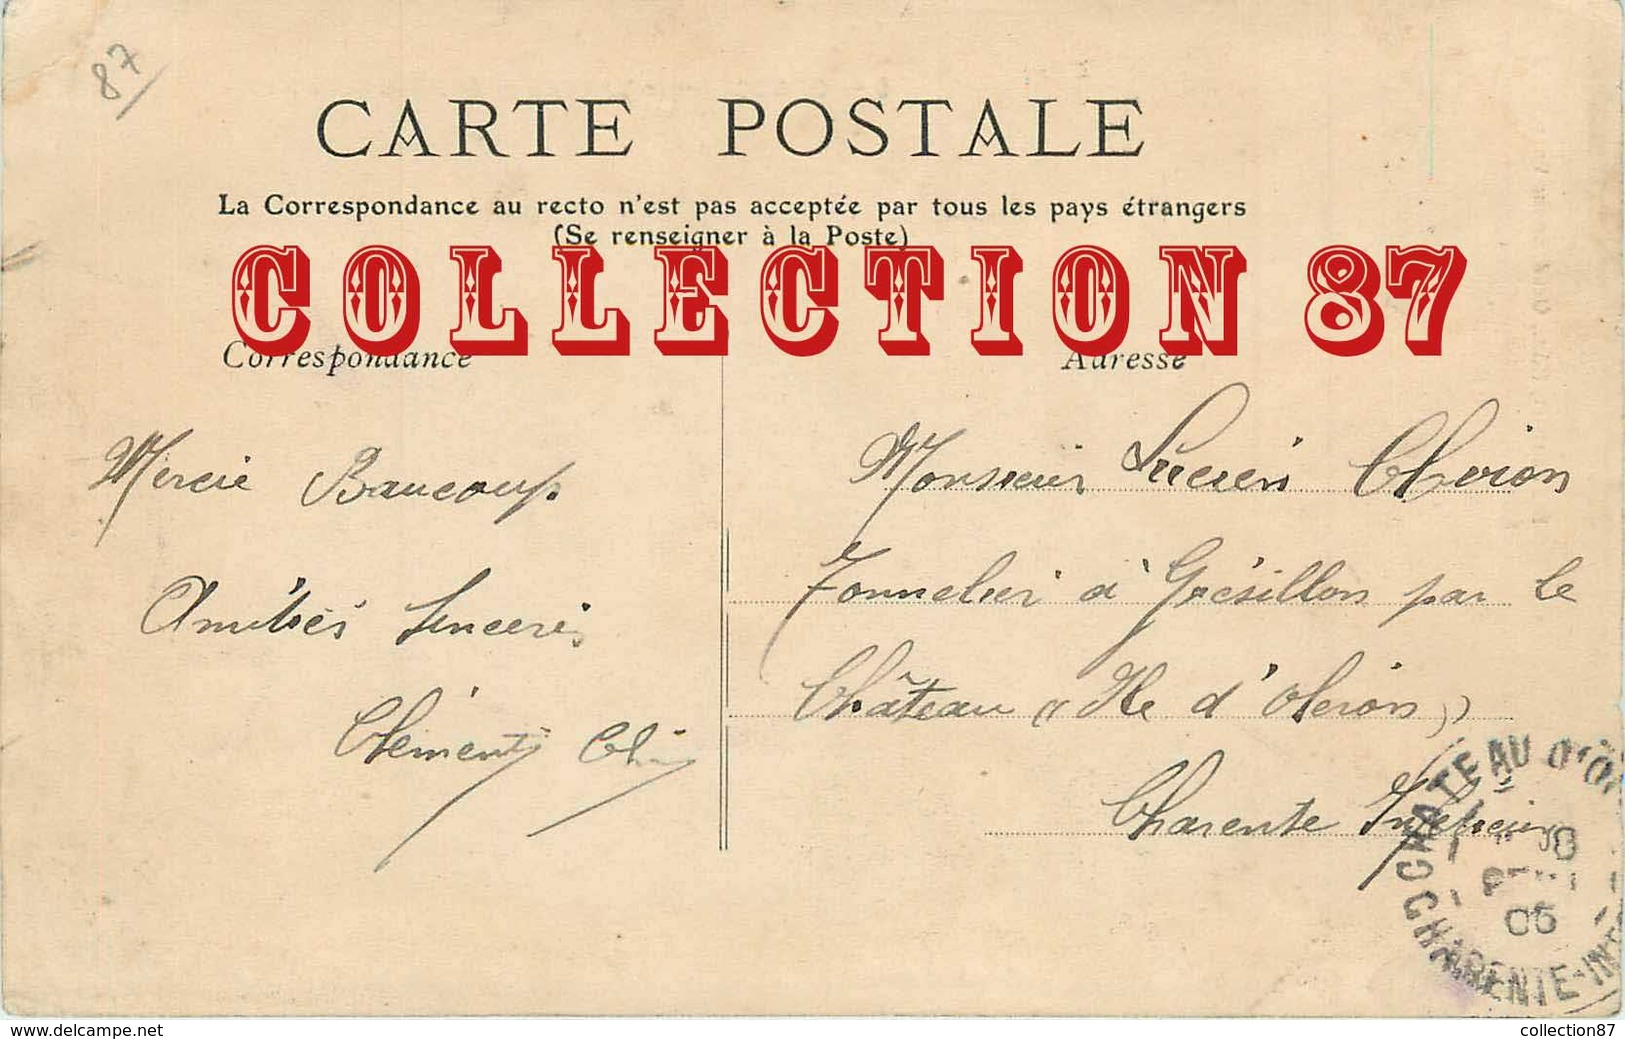 87
CARTE POSTALE
La Correspondance au recto n'est pas acceptée par tous les pays étrangers
(Se renseigner à la Poste)
COLLECTION 87
Correspondance
Adresse
Mercie Baucoup
Amitiés Sincères
Clément
Monsieur Lucien
Tonnelier à Grésillon par le
Château (Ile d'Oleron)
Charente Infrieure
CHATEAU D'OL
CHARENTE-INF
8
06
www.delcampe.net
collection87